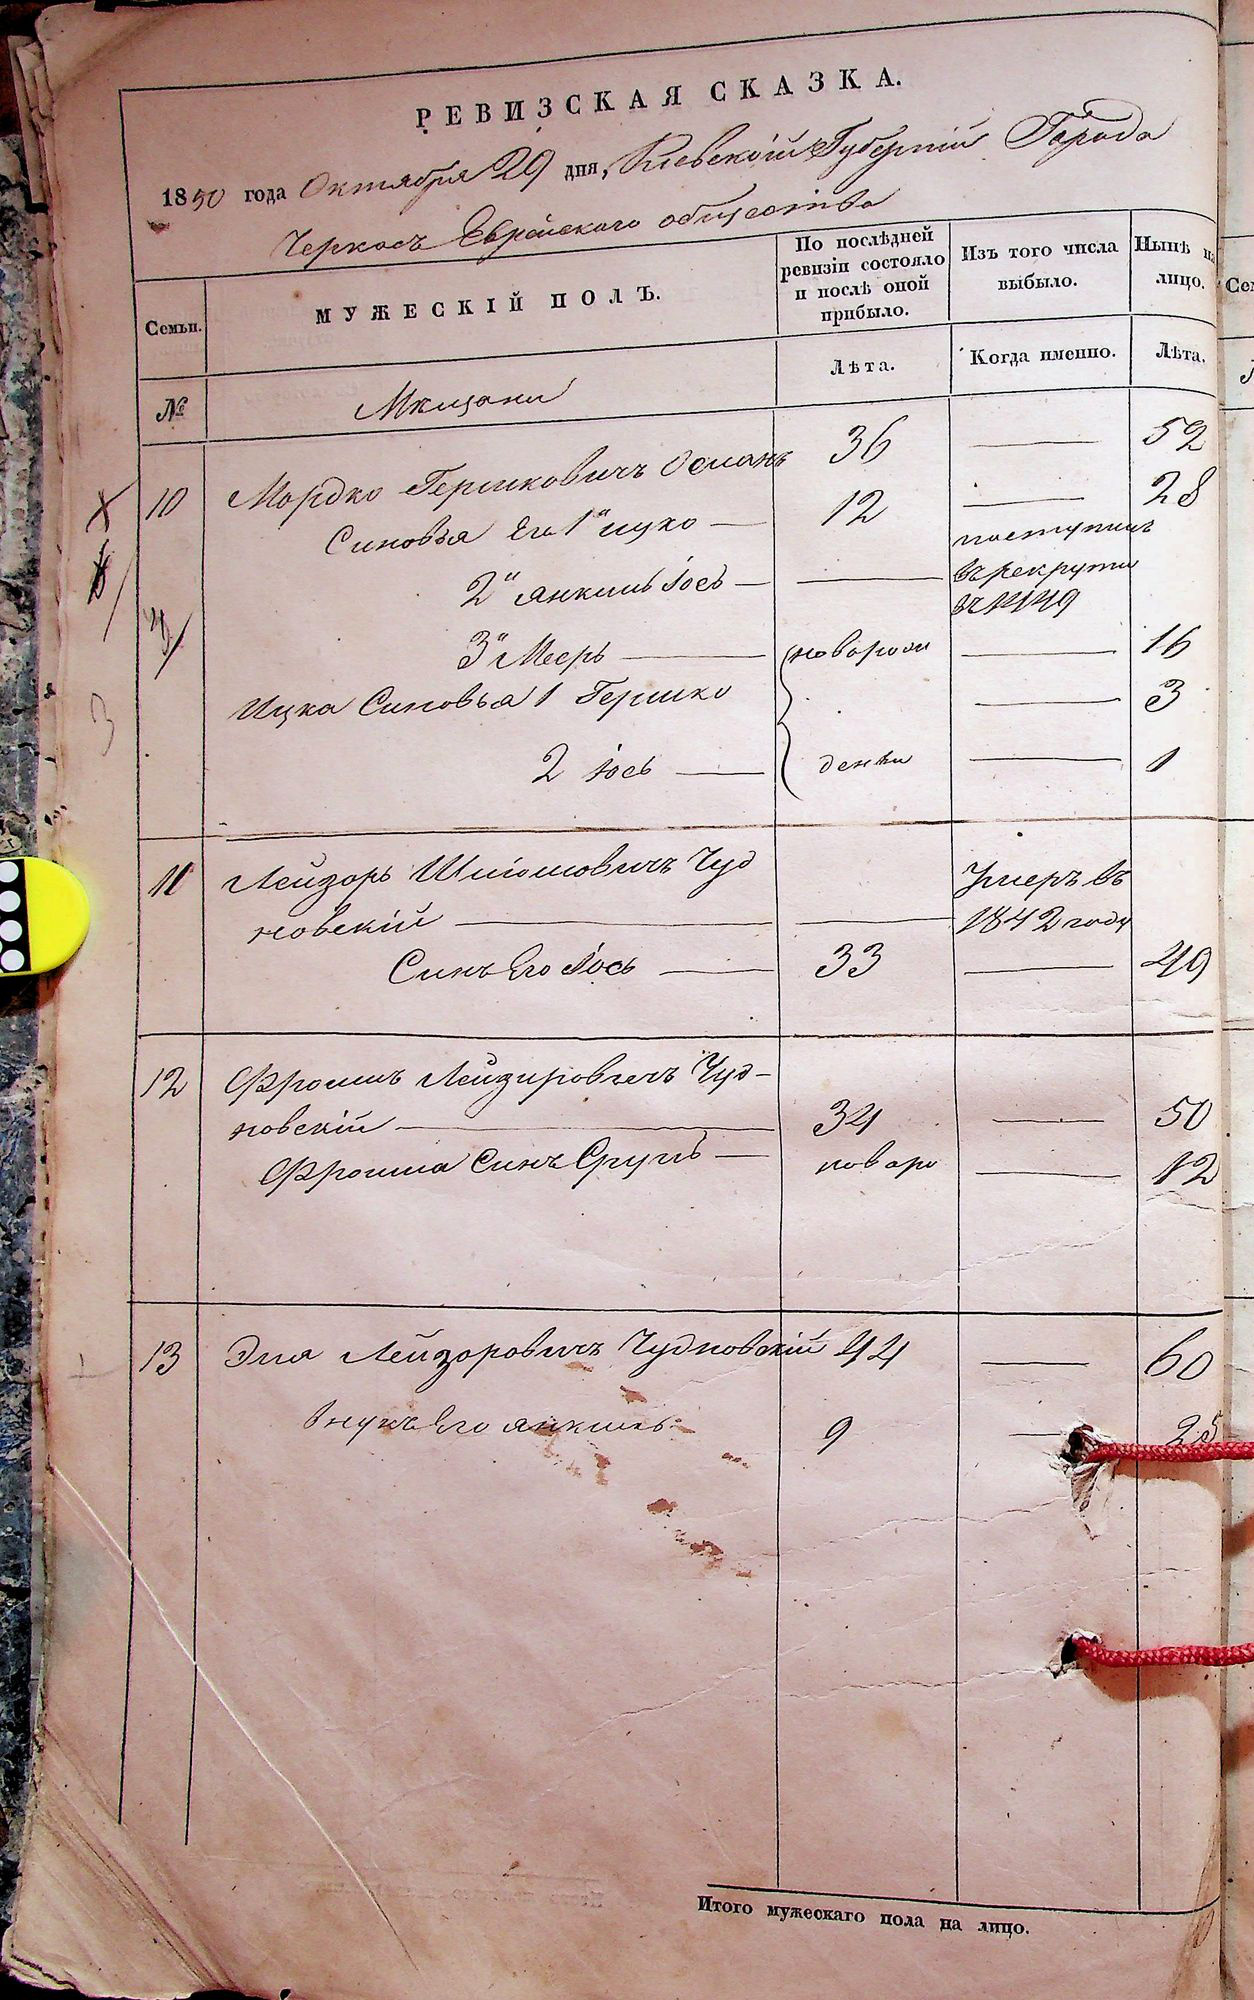 РЕВИЗСКАЯ СКАЗКА.
1850 года Октября 29 дня, Киевской Губерніи Города
Черкасъ Еврейскаго общества
Семьи.
МУЖЕСКІЙ ПОЛЪ.
По послѣдней ревизіи состояло и послѣ оной прибыло.
Изъ того числа выбыло.
Нынѣ на лицо.
Лѣта.
Когда именно.
Лѣта.
№
Мѣщани
10 Мордко Гершковичъ Османъ 36 — 52
Синовья Его 1й ицко — 12 — 28
2й янкиль Іось — — поступилъ
въ рекруты
в 1849
3й Мееръ — новорож — 16
Ицка Синовья 1 Гершко — 3
2 Іось — денни — 1
11 Лейзоръ Шліомовичъ Чуд
новскій — — Умеръ въ
1842 году
Синъ Его Іось — 33 — 49
12 Фроимъ Лейзировичъ Чуд-
новскій — 34 — 50
Фроима Синъ Сруль — новоро — 12
13 Эля Лейзоровичъ Чудновскій 44 — 60
внукъ Его янкиль 9 — 25
Итого мужескаго пола на лицо.